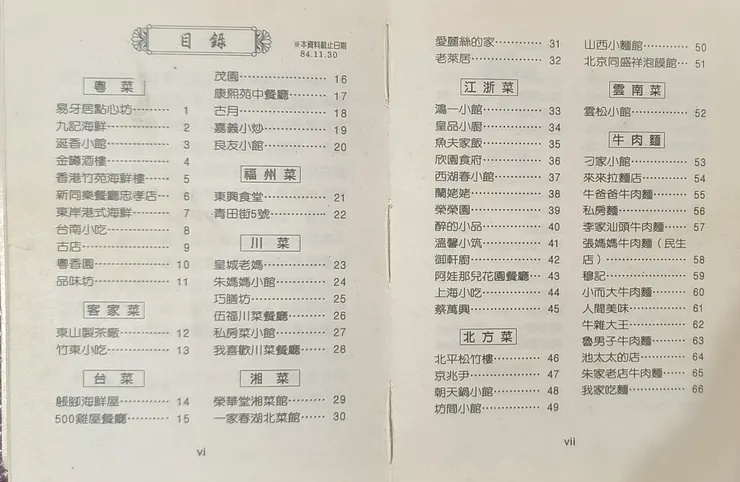 目錄
※本資料截止日期
84.11.30
粵菜
易牙居點心坊………… 1
九記海鮮……………… 2
涎香小館……………… 3
金罈酒樓……………… 4
香港竹苑海鮮樓……… 5
新同樂餐廳忠孝店… 6
東岸港式海鮮………… 7
台南小吃……………… 8
古店…………………… 9
粵香園………………… 10
品味坊………………… 11
客家菜
東山製茶廠…………… 12
竹東小吃……………… 13
台菜
躼腳海鮮屋…………… 14
500雞屋餐廳………… 15
茂園…………………… 16
康熙苑中餐廳………… 17
古月…………………… 18
嘉義小炒……………… 19
良友小館……………… 20
福州菜
東興食堂……………… 21
青田街5號…………… 22
川菜
皇城老媽……………… 23
朱媽媽小館…………… 24
巧膳坊………………… 25
伍福川菜餐廳………… 26
私房菜小館…………… 27
我喜歡川菜餐廳……… 28
湘菜
榮華堂湘菜館………… 29
一家春湖北菜館……… 30
vi
愛麗絲的家…………… 31
老萊居………………… 32
江浙菜
鴻一小館……………… 33
皇品小廚……………… 34
魚夫家飯……………… 35
欣園食府……………… 36
西湖春小館…………… 37
蘭姥姥………………… 38
榮榮園………………… 39
醉的小品……………… 40
溫馨小筑……………… 41
御軒廚………………… 42
阿娃那兒花園餐廳… 43
上海小吃……………… 44
蔡萬興………………… 45
北方菜
北平松竹樓…………… 46
京兆尹………………… 47
朝天鍋小館…………… 48
坊間小館……………… 49
山西小麵館…………… 50
北京同盛祥泡饃館… 51
雲南菜
雲松小館……………… 52
牛肉麵
刁家小館……………… 53
來來拉麵店…………… 54
牛爸爸牛肉麵………… 55
私房麵………………… 56
李家汕頭牛肉麵……… 57
張媽媽牛肉麵（民生
店）…………………… 58
穆記…………………… 59
小而大牛肉麵………… 60
人間美味……………… 61
牛雜大王……………… 62
魯男子牛肉麵………… 63
池太太的店…………… 64
朱家老店牛肉麵……… 65
我家吃麵……………… 66
vii